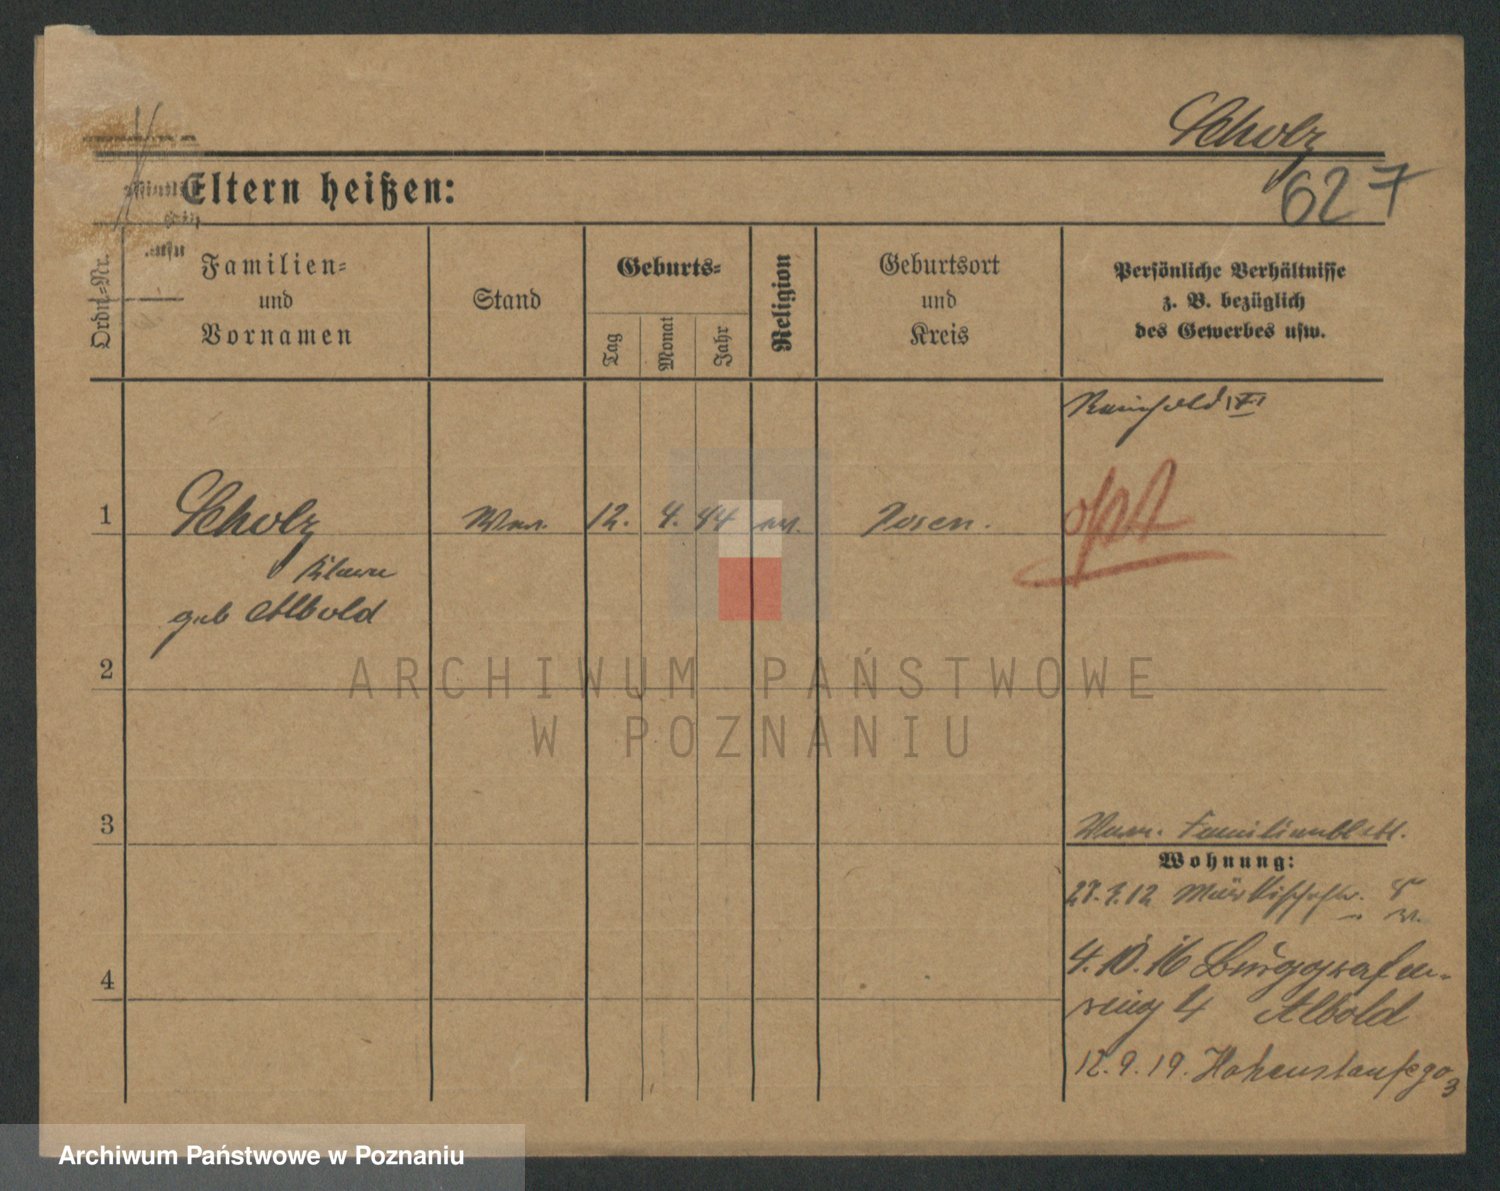 Scholz
627
Eltern heißen:
Ordn.-Nr.
Familien-
und
Vornamen
Stand
Geburts-
Tag
Monat
Jahr
Religion
Geburtsort
und
Kreis
Persönliche Verhältnisse
z. B. bezüglich
des Gewerbes usw.
1
Scholz
12.
4.
44
Posen.
geb Albold
2
ARCHIWUM PAŃSTWOWE
W POZNANIU
3
Familienblatt.
Wohnung:
4.10.16 Burggrafen-
ring 4 Albold
4
12.9.19. Hohenstaufe
3
Archiwum Państwowe w Poznaniu